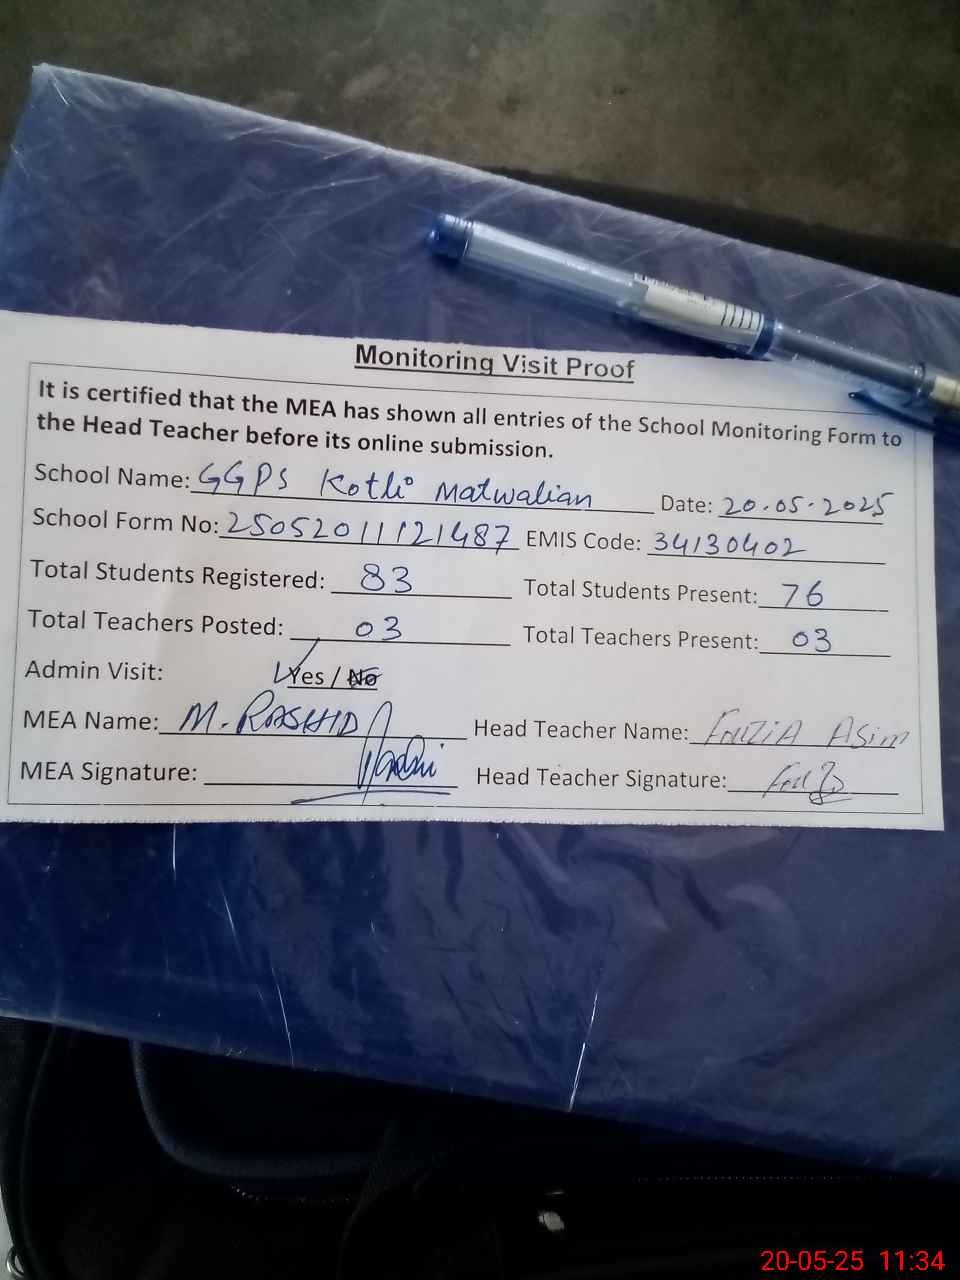 Monitoring Visit Proof
It is certified that the MEA has shown all entries of the School Monitoring Form to
the Head Teacher before its online submission.
School Name: GGPS Kotli Matwalian Date: 20.05.2025
School Form No: 25052011121487 EMIS Code: 34130402
Total Students Registered: 83 Total Students Present: 76
Total Teachers Posted: 03 Total Teachers Present: 03
Admin Visit: Yes / No
MEA Name: M. RASHID Head Teacher Name: FAUZIA ASim
MEA Signature: Head Teacher Signature:
20-05-25 11:34